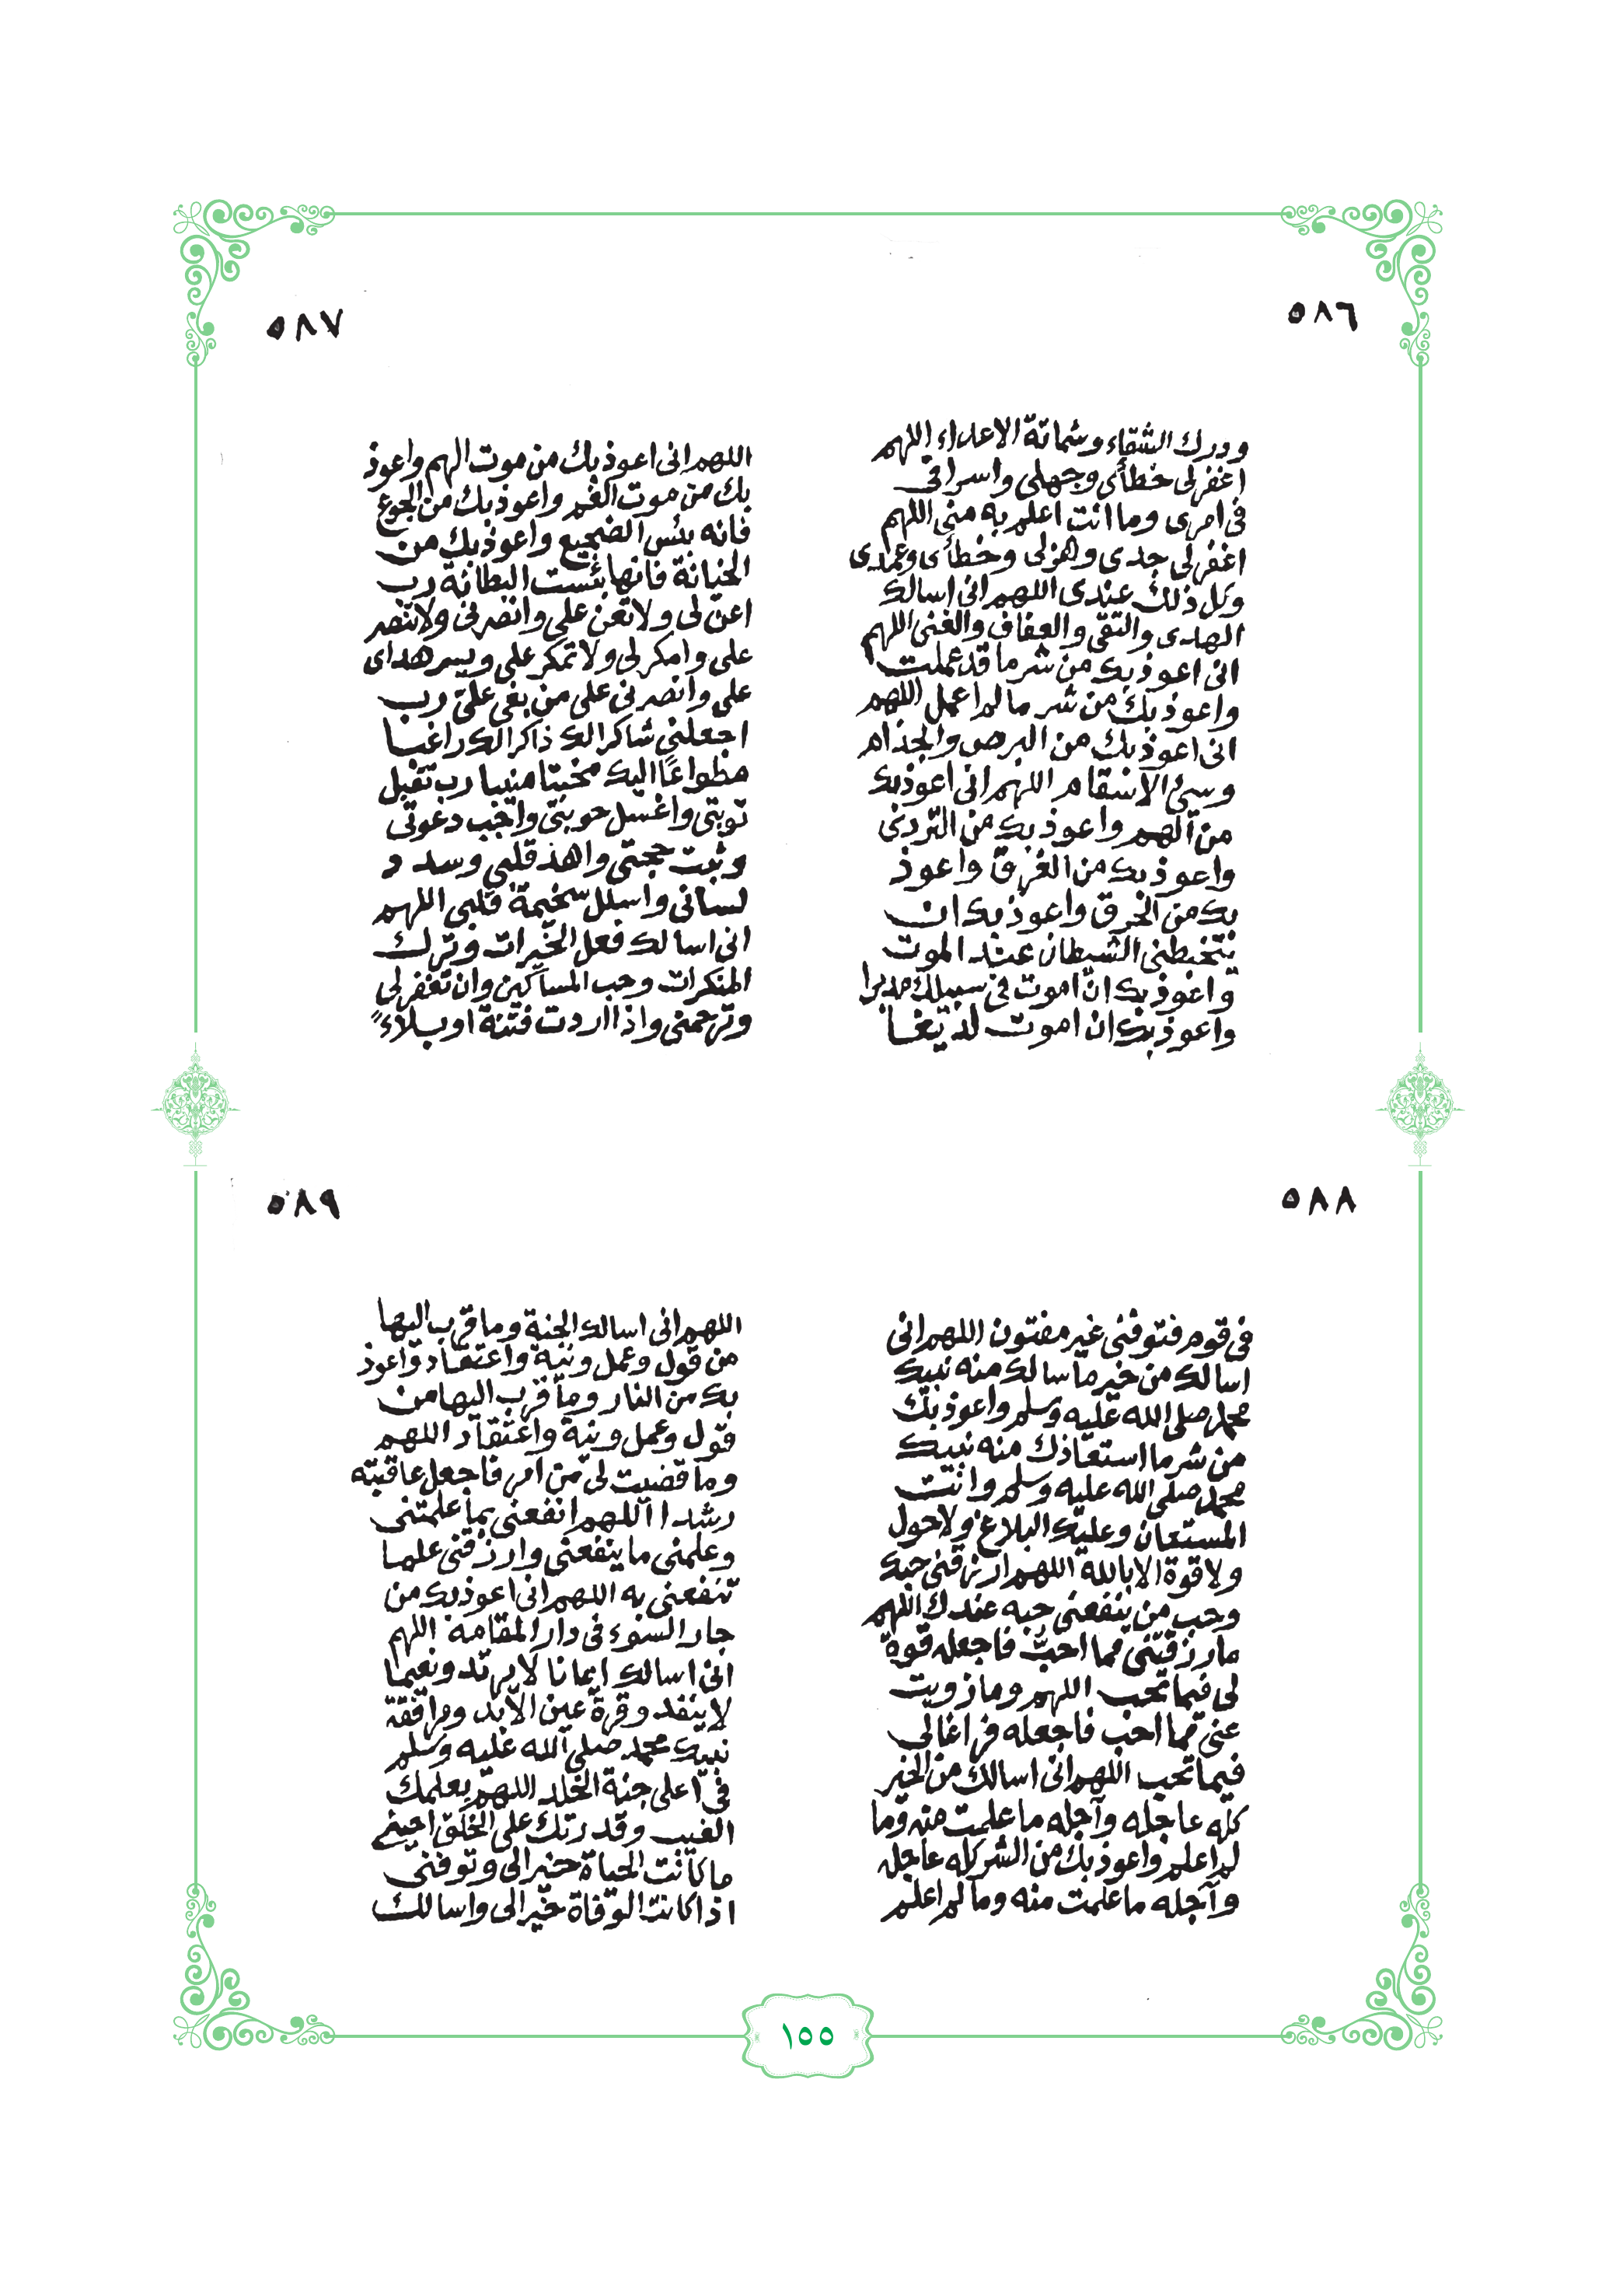 ٥٨٦
ودرك الشقاء وشماتة الاعداء اللهم
اغفر لى خطأى وجهلى واسرافى
فى امرى وما انت اعلم به منى اللهم
اغفر لى جدى وهزلى وخطأى وعمدى
وكل ذلك عندى اللهم انى اسالك
الهدى والتقى والعفاف والغنى اللهم
انى اعوذ بك من شر ما قد عملت
واعوذ بك من شر ما لم اعمل اللهم
انى اعوذ بك من البرص والجذام
وسيئ الاسقام اللهم انى اعوذ بك
من الهم واعوذ بك من التردى
واعوذ بك من الغرق واعوذ
بك من الحرق واعوذ بك ان
يتخبطنى الشيطان عند الموت
واعوذ بك ان اموت فى سبيلك مدبرا
واعوذ بك ان اموت لديغا
٥٨٧
اللهم انى اعوذ بك من موت الهم واعوذ
بك من موت الغم واعوذ بك من الجوع
فانه بئس الضجيع واعوذ بك من
الخيانة فانها بئست البطانة رب
اعن لى ولا تعن على وانصرنى ولا تنصر
على وامكر لى ولا تمكر على ويسر هداى
على وانصرنى على من بغى علىّ رب
اجعلنى شاكرا لك ذاكرا لك راغبا
مطواعًا اليك مخبتا منيبا رب تقبل
توبتى واغسل حوبتى واجب دعوتى
وثبت حجتى واهد قلبى وسدد
لسانى واسلل سخيمة قلبى اللهم
انى اسالك فعل الخيرات وترك
المنكرات وحب المساكين وان تغفر لى
وترحمنى واذا اردت فتنة او بلاءً
٥٨٨
فى قوم فتوفنى غير مفتون اللهم انى
اسالك من خير ما سالك منه نبيك
محمد صلى الله عليه وسلم واعوذ بك
من شر ما استعاذك منه نبيك
محمد صلى الله عليه وسلم وانت
المستعان وعليك البلاغ ولا حول
ولا قوة الا بالله اللهم ارزقنى حبك
وحب من ينفعنى حبه عندك اللهم
ما رزقتنى مما احبُّ فاجعله قوة
لى فيما تحب اللهم وما زويت
عنى مما احب فاجعله فراغا لى
فيما تحب اللهم انى اسالك من الخير
كله عاجله وآجله ما علمت منه وما
لم اعلم واعوذ بك من الشر كله عاجله
وآجله ما علمت منه وما لم اعلم
٥٨٩
اللهم انى اسالك الجنة وما قرب اليها
من قول وعمل ونية واعتقاد واعوذ
بك من النار وما قرب اليها من
قول وعمل ونية واعتقاد اللهم
وما قضيت لى من امر فاجعل عاقبته
رشدا اللهم انفعنى بما علمتنى
وعلمنى ما ينفعنى وارزقنى علما
تنفعنى به اللهم انى اعوذ بك من
جار السوء فى دار المقامة اللهم
انى اسالك ايمانا لا يرتد ونعيما
لا ينفد وقرة عين الابد ومرافقة
نبيك محمد صلى الله عليه وسلم
فى اعلى جنة الخلد اللهم بعلمك
الغيب وقدرتك على الخلق احينى
ما كانت الحياة خيرا لى وتوفنى
اذا كانت الوفاة خيرا لى واسالك
١٥٥